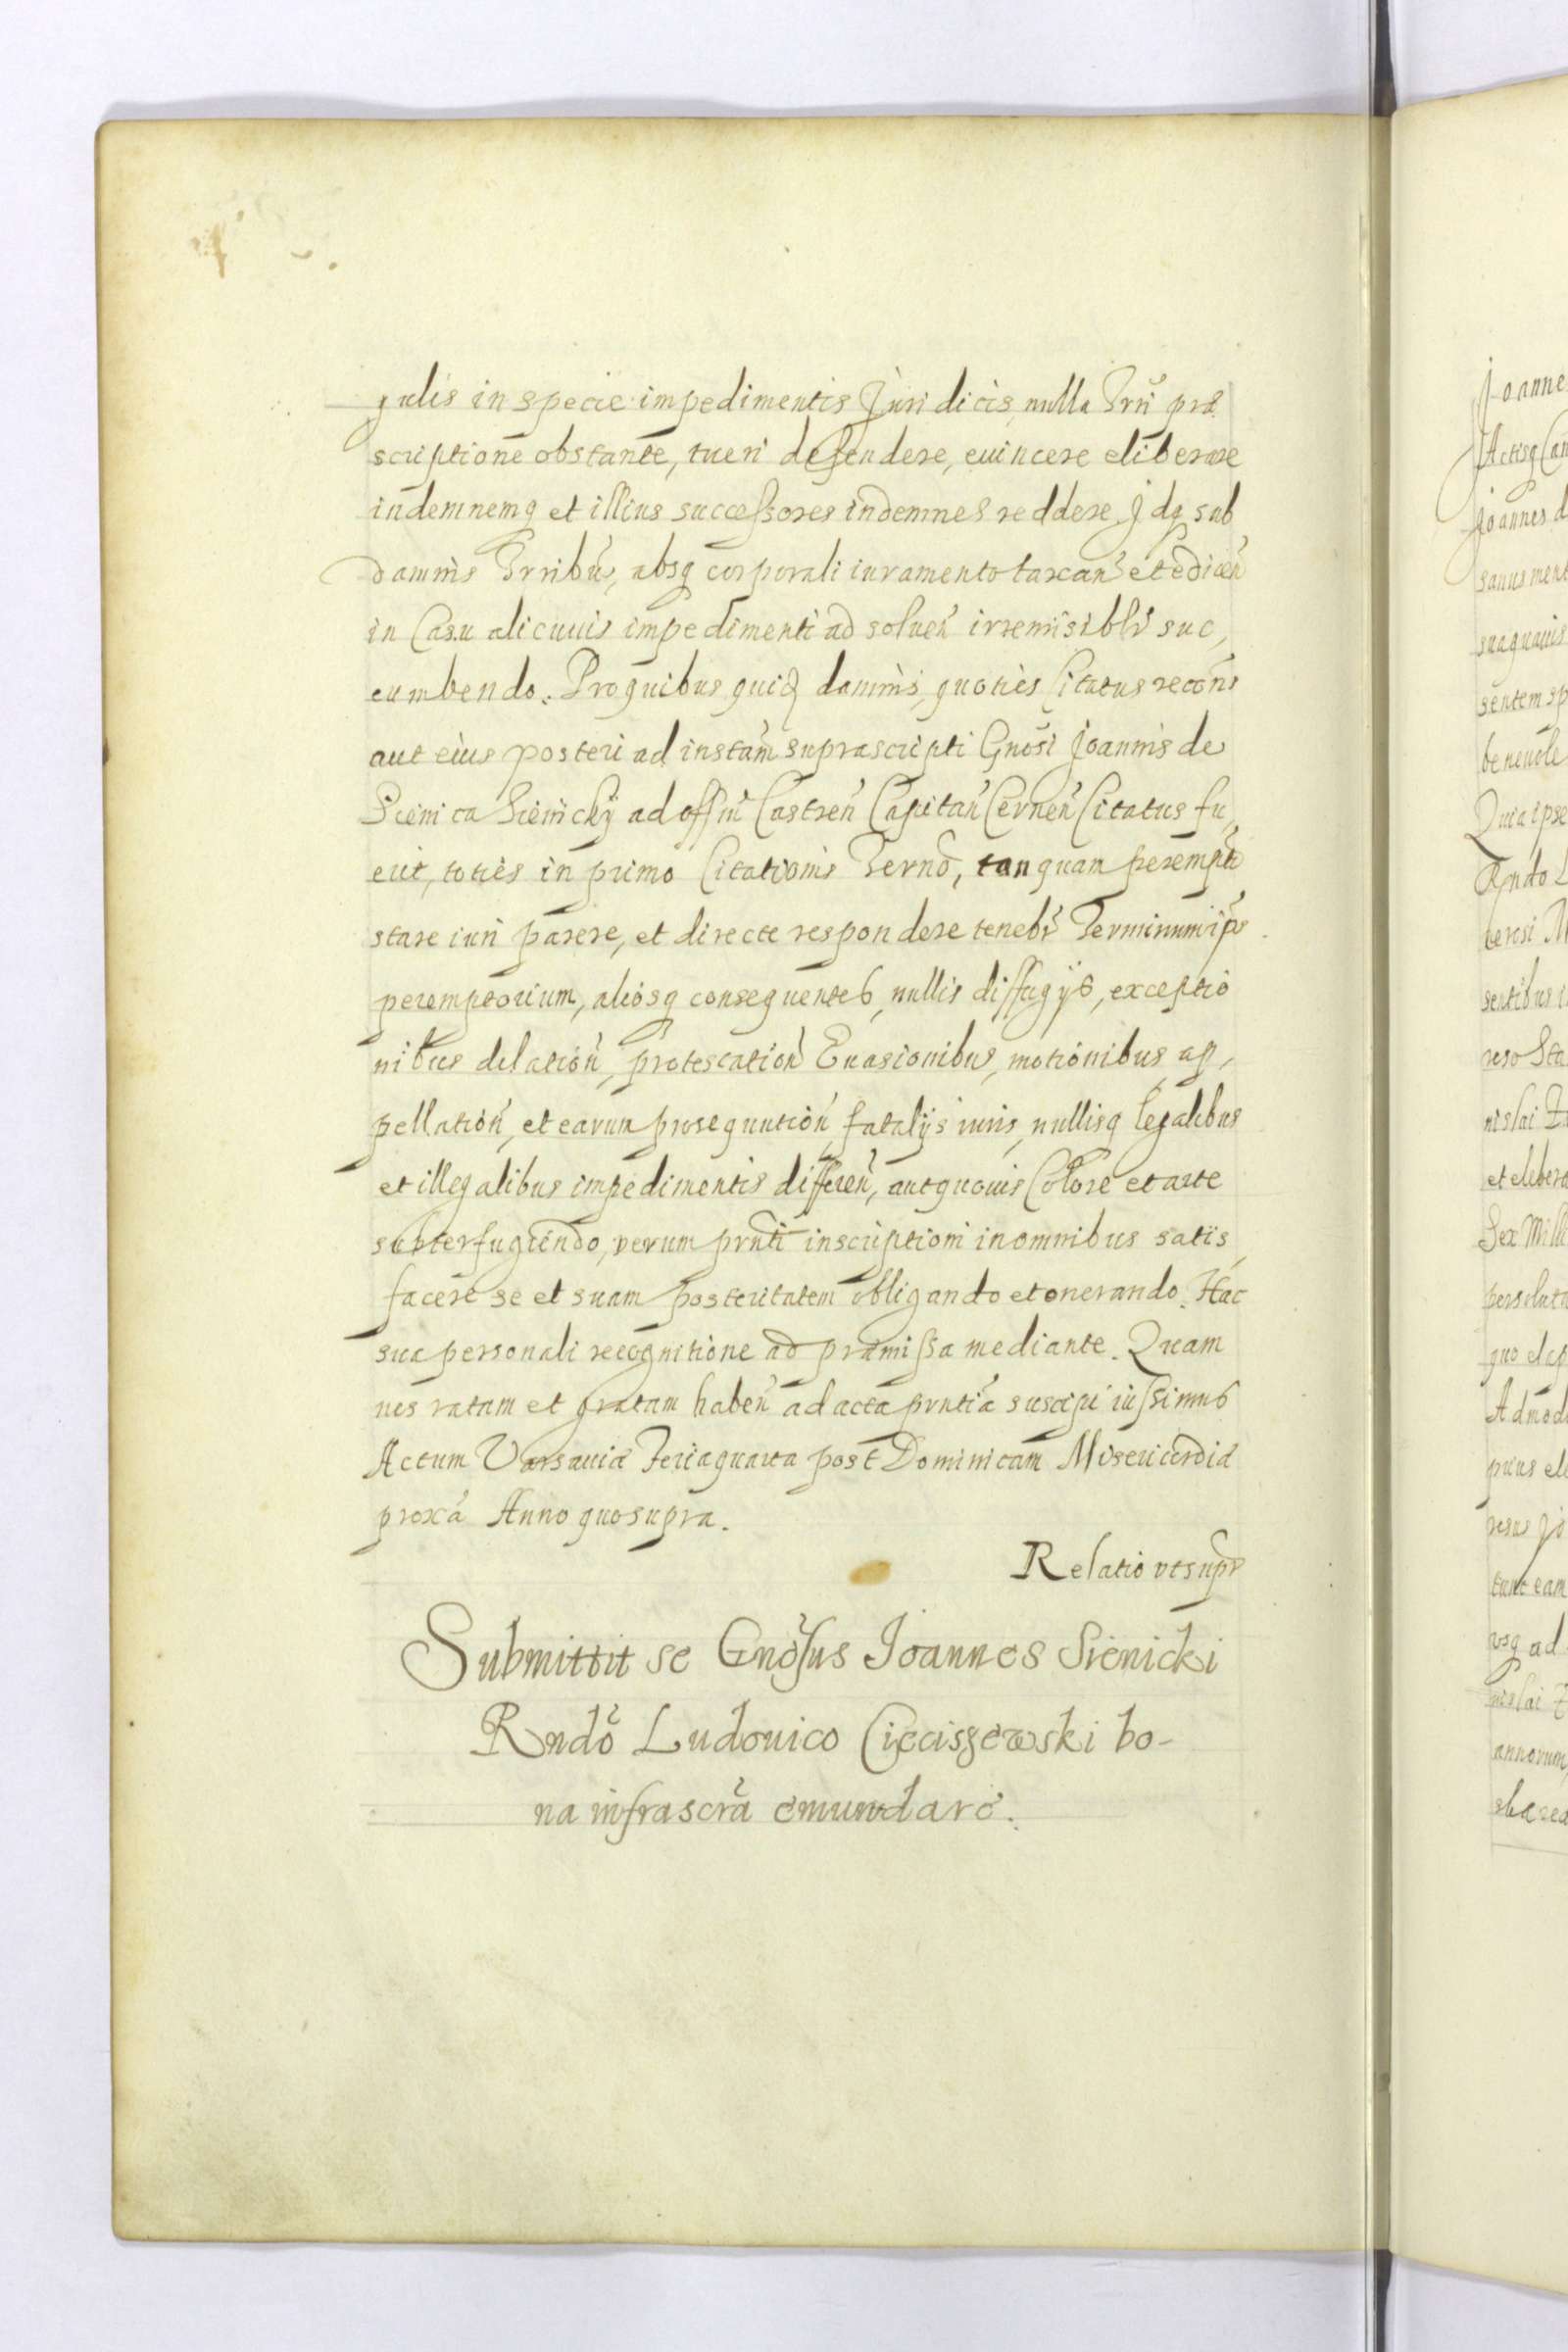 gulis in specie impedimentis Juridicis, nulla Trri præ
scriptione obstante, tueri defendere, euincere eliberare
indemnemq et illius successores indemnes reddere. Jdq sub
damnis Trribus, absq corporali iuramento taxan et edicen
in Casu alicuius impedimenti ad soluen irremisiblr suc,
cumbendo. Pro quibus quidẽ damnis, quoties Citatus recons
aut eius posteri ad instam suprascripti Gnosi Joannis de
Sienica Sienicky ad offm Castren Capitan Cernen Citatus fu,
erit, toties in primo Citationis Terno, tanquam perempto
stare iuri parere, et directe respondere tenebr Terminum ipm
peremptorium, aliosq consequentes, nullis diffugijs, exceptio
nibus dilation, protestation Euasionibus, motionibus, ap,
pellation, et earum prosequution, fatalijs iuris, nullisq legalibus
et illegalibus impedimentis differen, aut quouis Colore et arte
subterfugiendo, verum prnti inscriptioni in omnibus satis,
facere se et suam posteritatem obligando et onerando. Hac
sua personali recognitione ad præmissa mediante. Quam
nos ratam et gratam haben ad acta prntia suscipi iussimus
Actum Varsauiæ Feria quarta post Dominicam Misericordiæ
proxa Anno quo supra.
Relatio vt supr
Submittit se Gnosus Joannes Sienicki
Rndo Ludouico Cieciszewski bo-
na infrascra emundare.
Joanne
Actisq Can
Joannes d
sanus ment
suaquauis
sentem sp
beneuole
Quia ipse
Rndo L
nerosi M
sentibus i
reso Sta
nislai
et elibera
Sex Mille
persoluta
quo elap
Admod
prius el
resus Jo
tunc eam
vsq ad
nislai
annorum